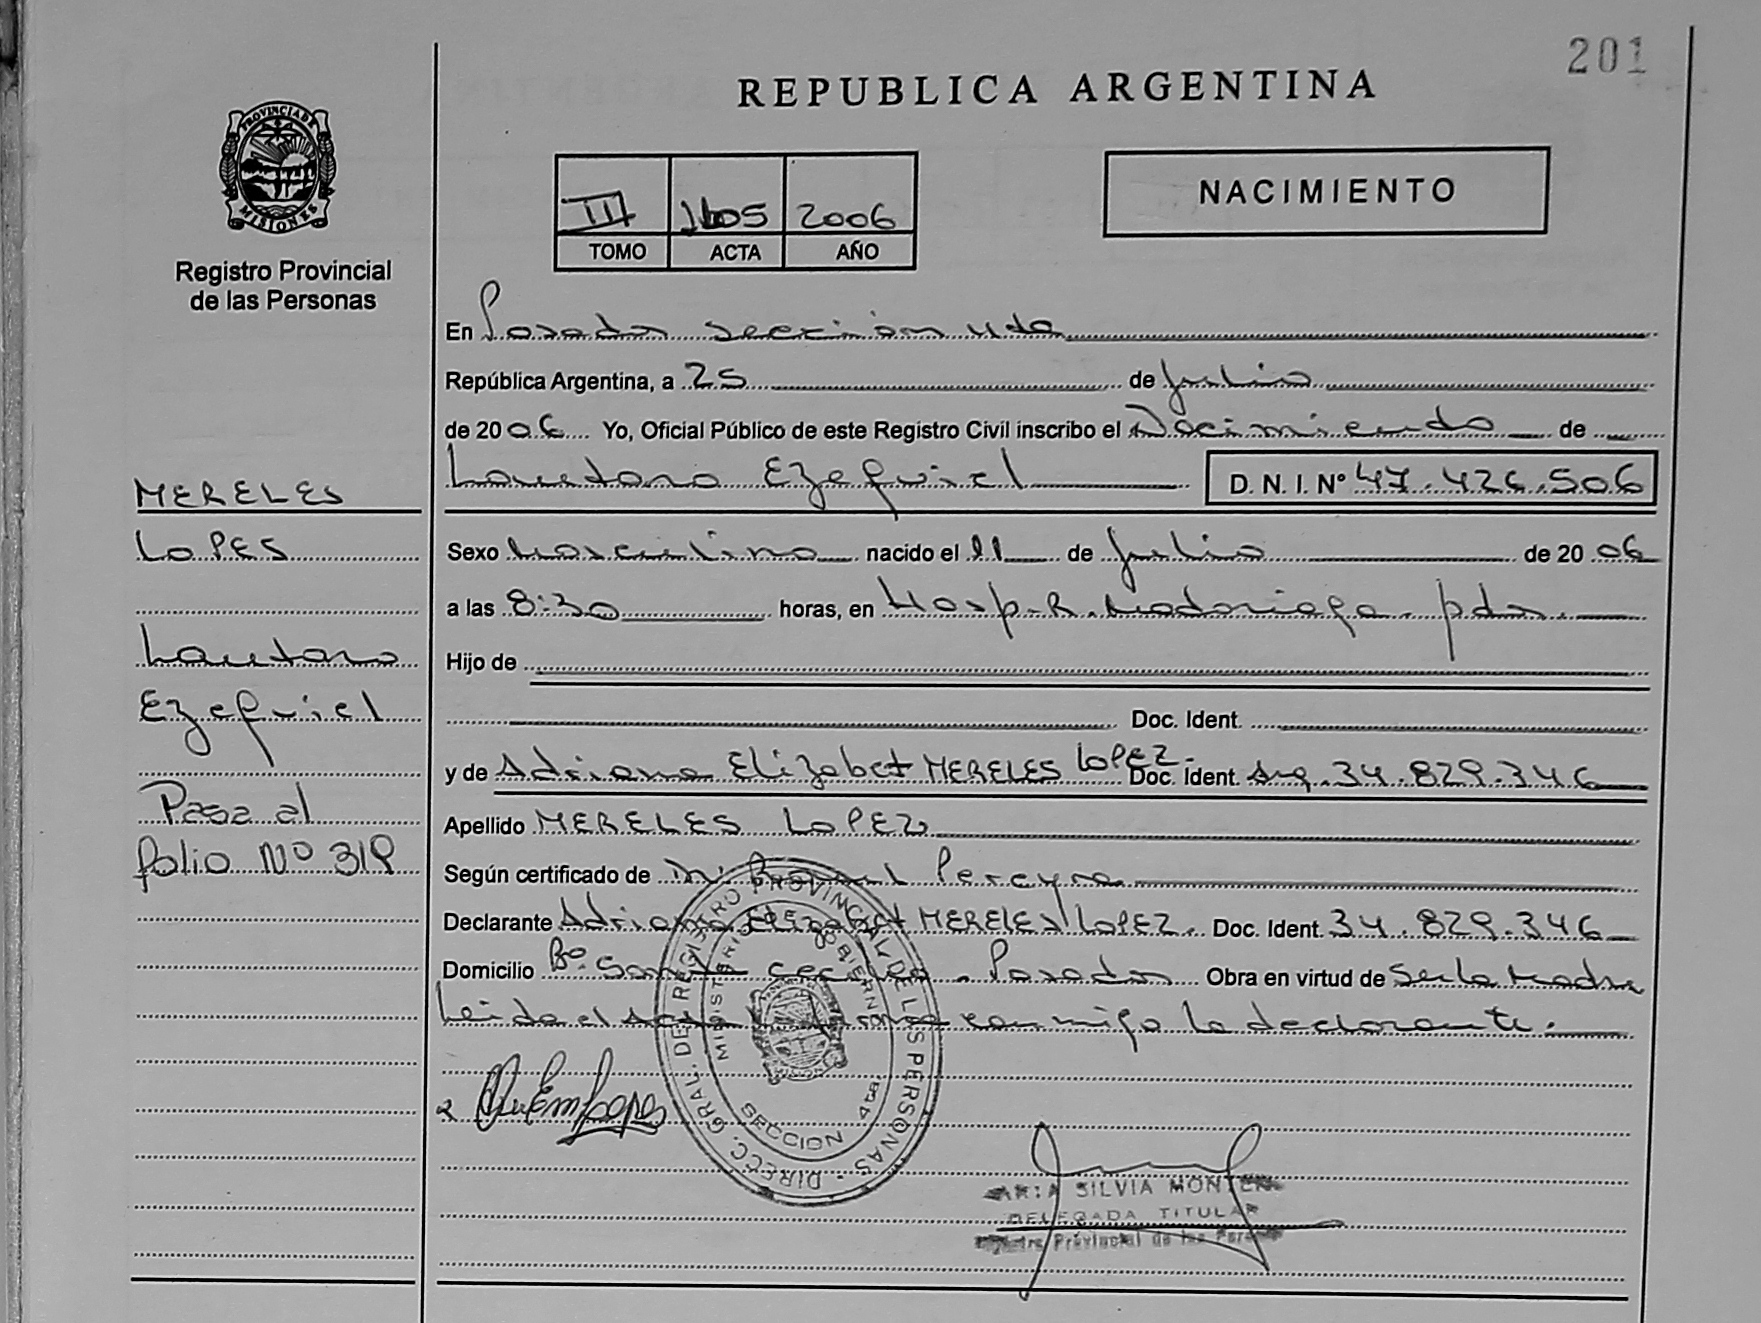 201
REPUBLICA ARGENTINA
PROVINCIA DE
MISIONES
Registro Provincial
de las Personas
III 2006
TOMO ACTA AÑO
NACIMIENTO
En Posadas Sección 4ta
República Argentina, a 25 de Julio
de 2006 Yo, Oficial Público de este Registro Civil inscribo el Nacimiento de
Lautaro Ezequiel D. N. I. Nº 47.426.506
MERELES
LOPES
Lautaro
Ezequiel
Pasa al
folio Nº 319
Sexo Masculino nacido el 11 de Julio de 2006
a las 8:30 horas, en Hosp. R. Madariaga. pdas.
Hijo de
Doc. Ident.
y de Adriana Elizabet MERELES LOPEZ. Doc. Ident. Arg. 34.829.346
Apellido MERELES LOPEZ
Según certificado de Pereyra
Declarante Adriana Elizabet MERELES LOPEZ. Doc. Ident. 34.829.346
Domicilio Bº. Santa Cecilia. Posadas Obra en virtud de Ser la Madre
Leida el Acta conmigo la declarante.
DIRECC. GRAL. DEL REGISTRO PROVINCIAL DE LAS PERSONAS
MINISTERIO DE GOBIERNO
SECCION 4ta.
SILVIA
DELEGADA TITULAR
Provincial de las